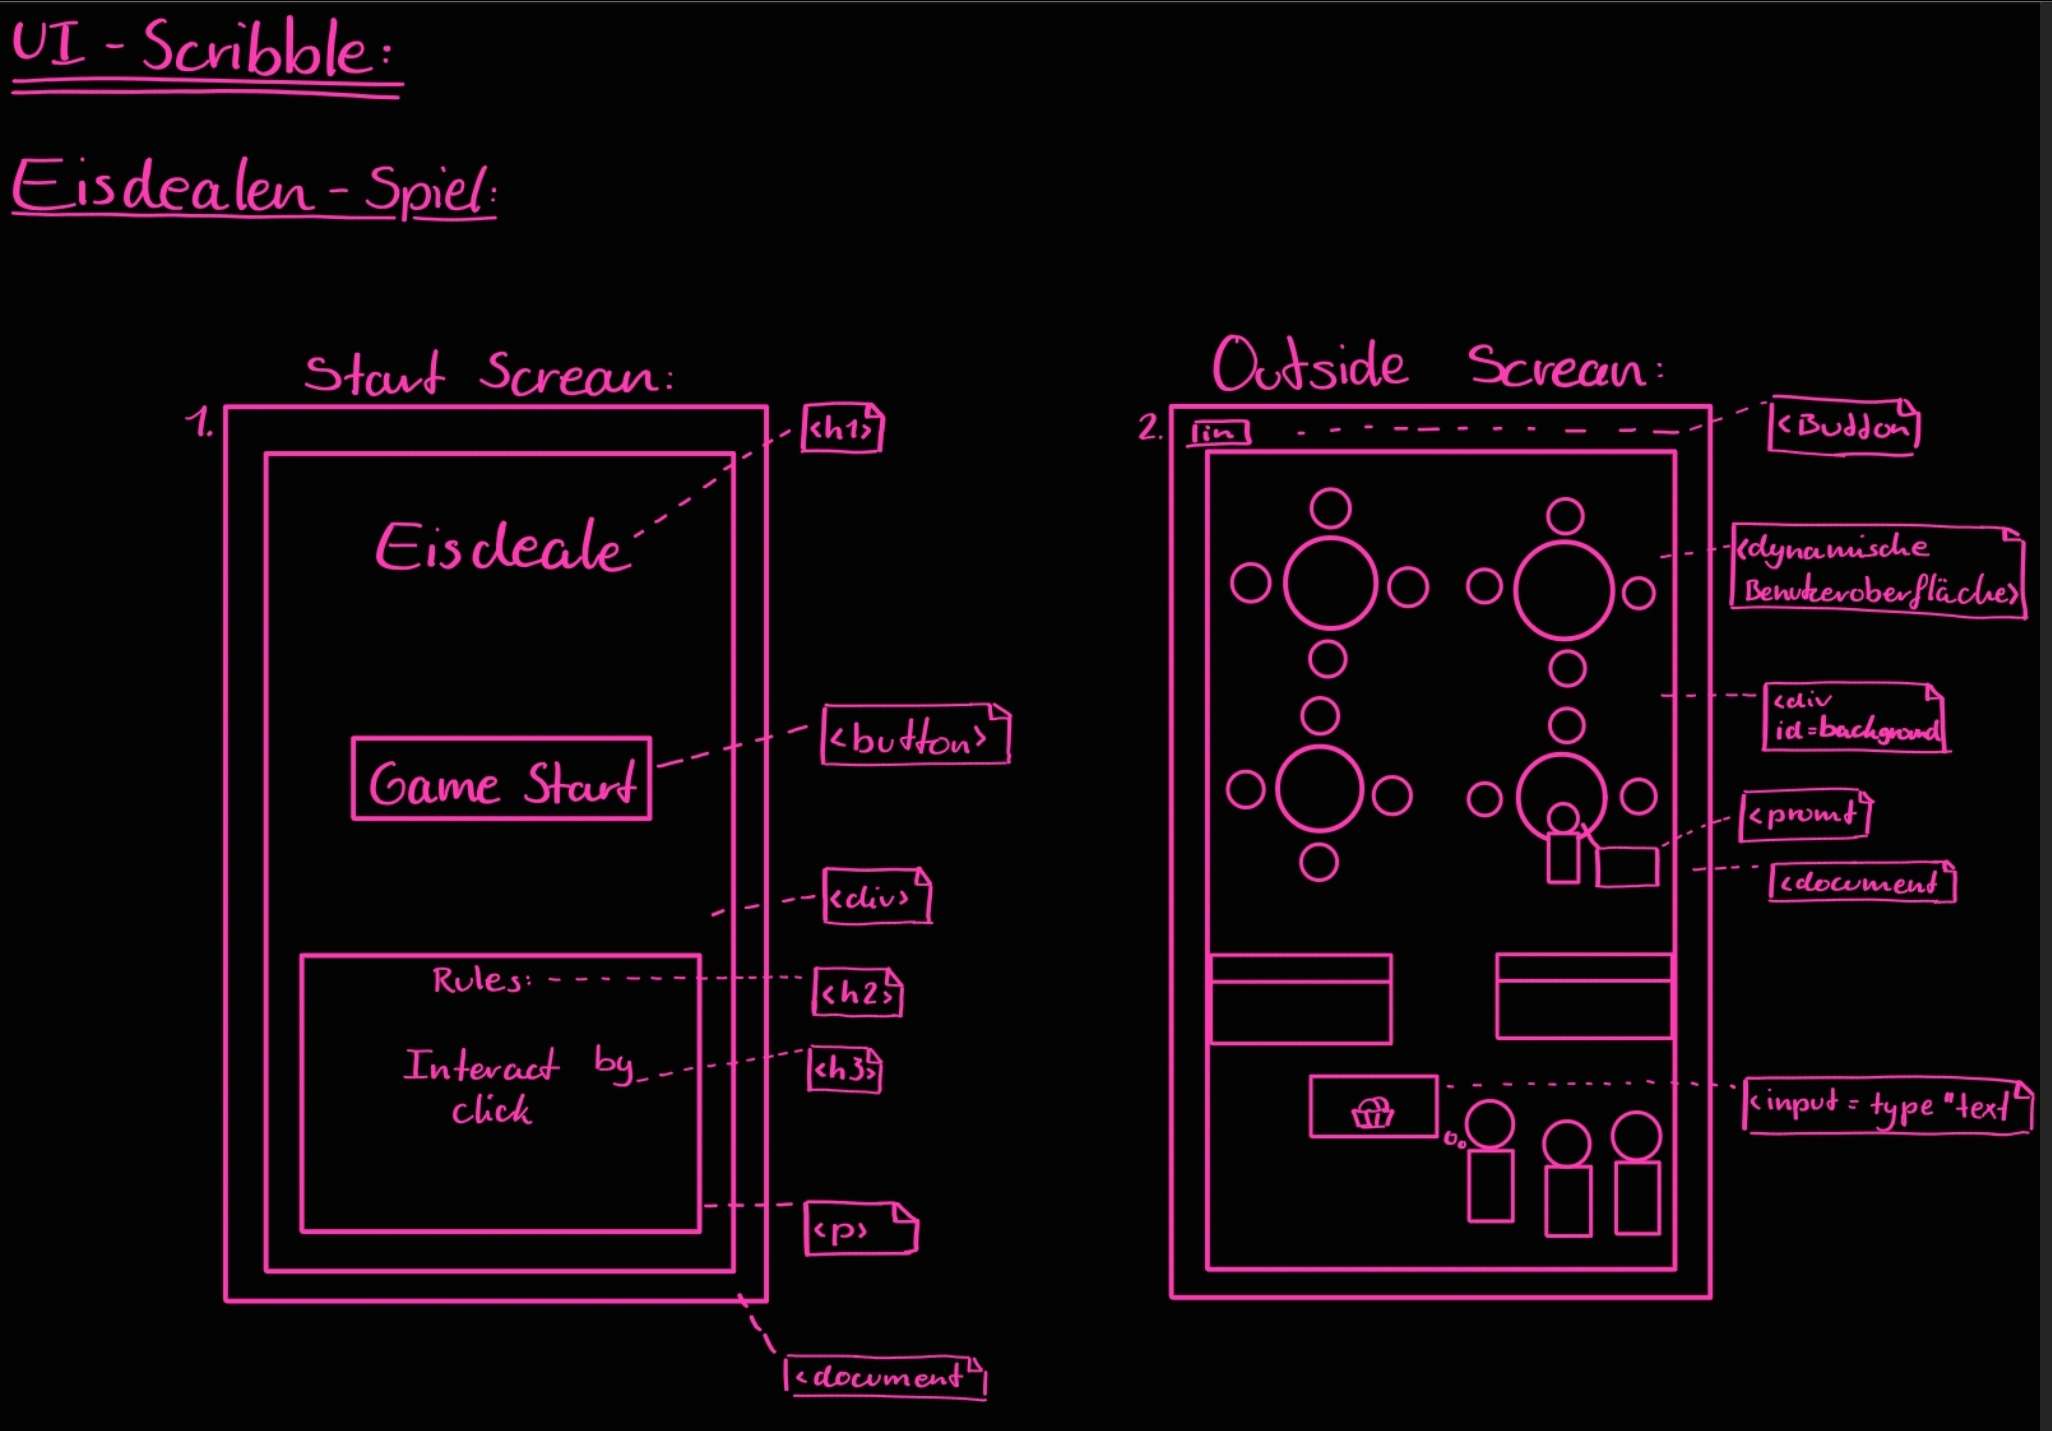 UI - Scribble:
Eisdealen - Spiel:
Start Screan:
1.
<h1>
Eisdeale
Game Start
<button>
<div>
Rules:
<h2>
Interact by
click
<h3>
<p>
<document
Outside Screan:
2.
in
<Buddon
<dynamische
Benutzeroberfläche>
<div
id=background
<promt
<document
<input = type "text